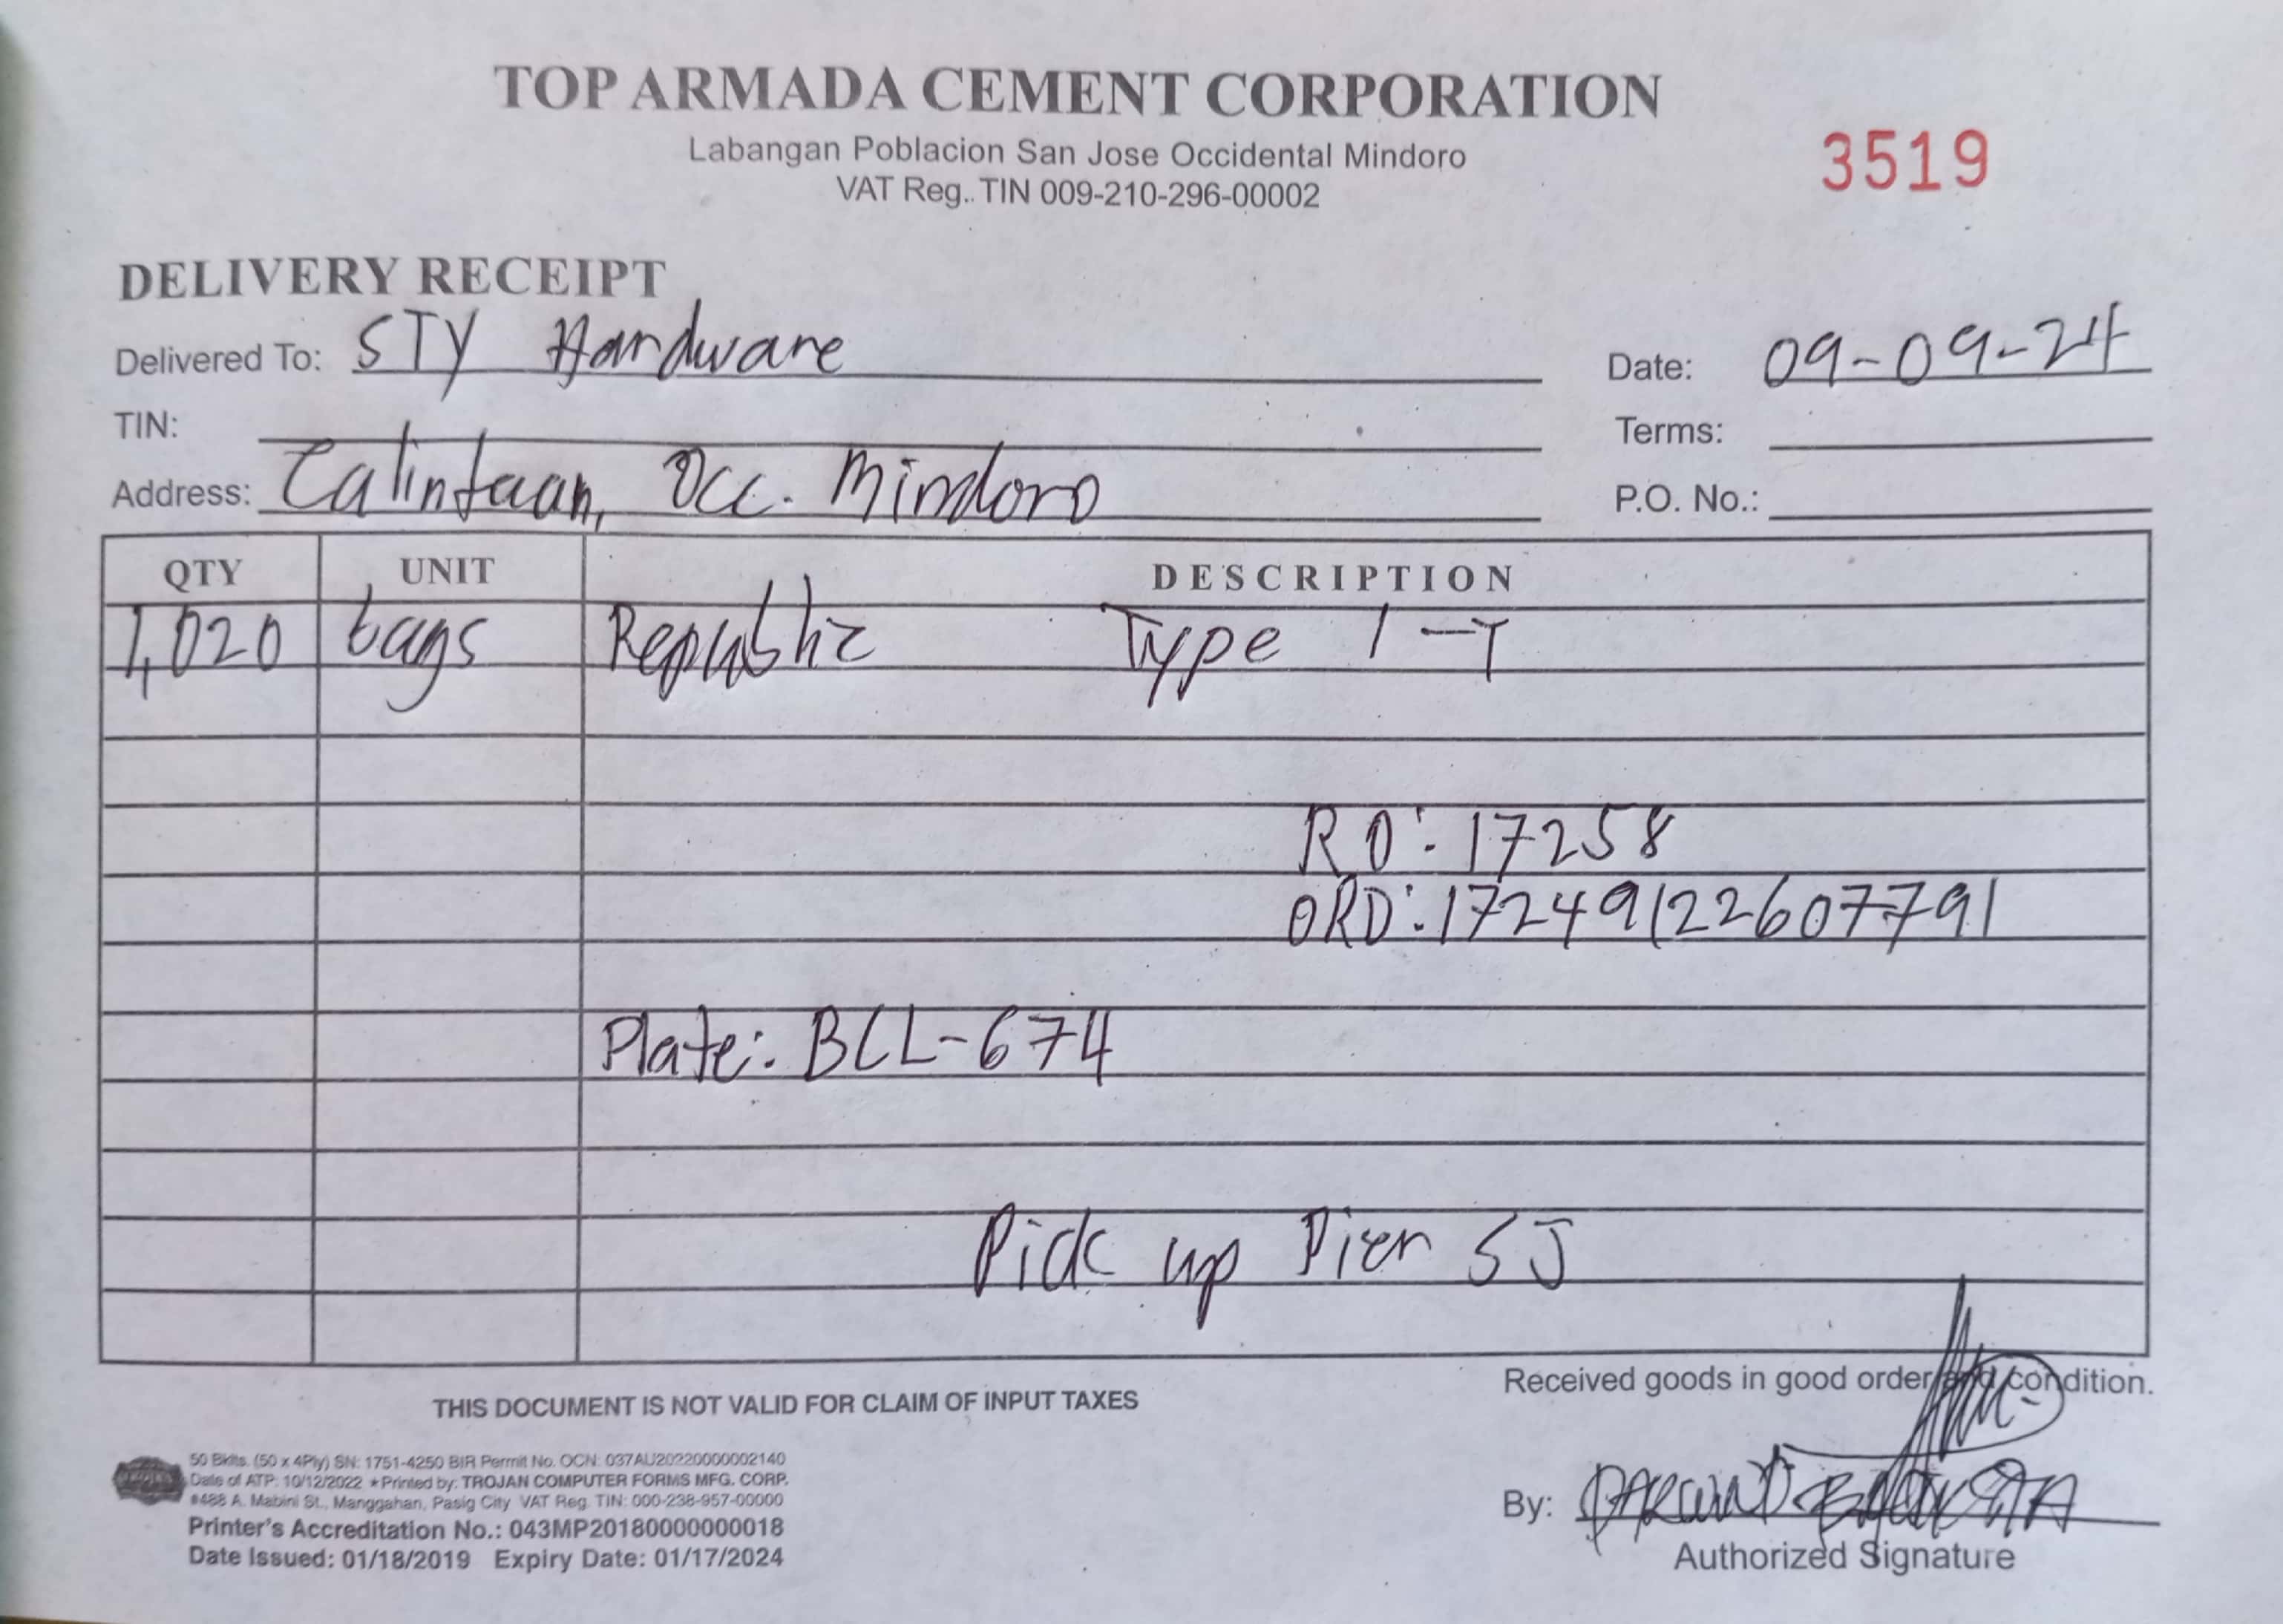 TOP ARMADA CEMENT CORPORATION
Labangan Poblacion San Jose Occidental Mindoro
VAT Reg. TIN 009-210-296-00002
3519
DELIVERY RECEIPT
Delivered To: STY Hardware
Date: 09-09-24
TIN:
Terms:
Address: Calintaan, Occ. Mindoro
P.O. No.:
QTY UNIT DESCRIPTION
1,020 bags Republic Type 1-T
RO: 17258
ORD: 17249122607791
Plate: BCL-674
Pick up Pier SJ
Received goods in good order and condition.
THIS DOCUMENT IS NOT VALID FOR CLAIM OF INPUT TAXES
50 Bklts. (50 x 4Ply) SN: 1751-4250 BIR Permit No. OCN: 037AU20220000002140
Date of ATP: 10/12/2022 ★ Printed by: TROJAN COMPUTER FORMS MFG. CORP.
#488 A. Mabini St., Manggahan, Pasig City VAT Reg. TIN: 000-238-957-00000
Printer's Accreditation No.: 043MP20180000000018
Date Issued: 01/18/2019 Expiry Date: 01/17/2024
By:
Authorized Signature